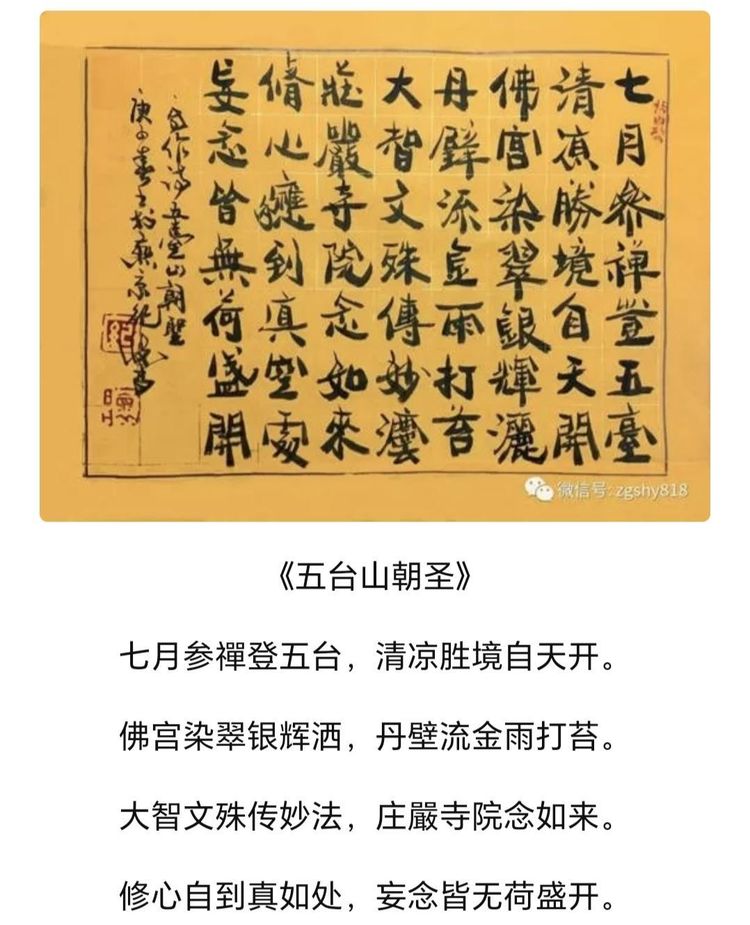 七月參禪登五臺
清凉勝境自天開
佛宮染翠銀輝灑
丹壁流金雨打苔
大智文殊傳妙灋
莊嚴寺院念如來
脩心應到真空處
妄念皆無荷盛開
作詩五臺山朝聖
庚子春
微信号: zgshy818
《五台山朝圣》
七月参禪登五台，清凉胜境自天开。
佛宫染翠银辉洒，丹壁流金雨打苔。
大智文殊传妙法，庄嚴寺院念如来。
修心自到真如处，妄念皆无荷盛开。